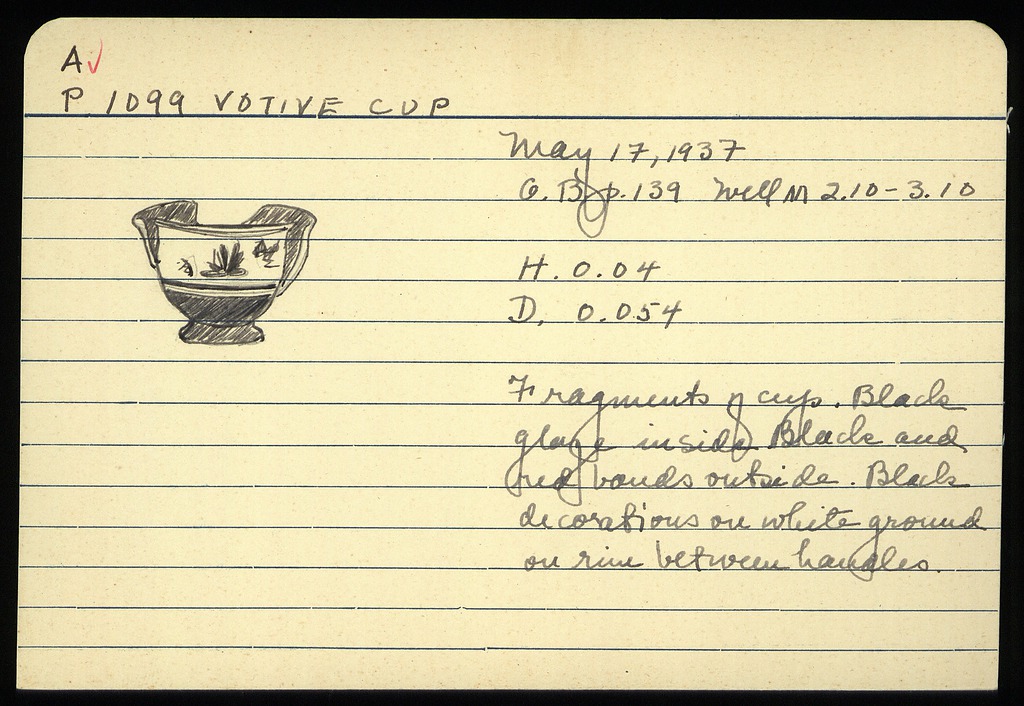 A✓
P 1099 VOTIVE CUP
May 17, 1937
G.B. p.139 Well M 2.10-3.10
H. 0.04
D. 0.054
Fragments of cup. Black
glaze inside Black and
red bands outside. Black
decorations on white ground
on rim between handles.